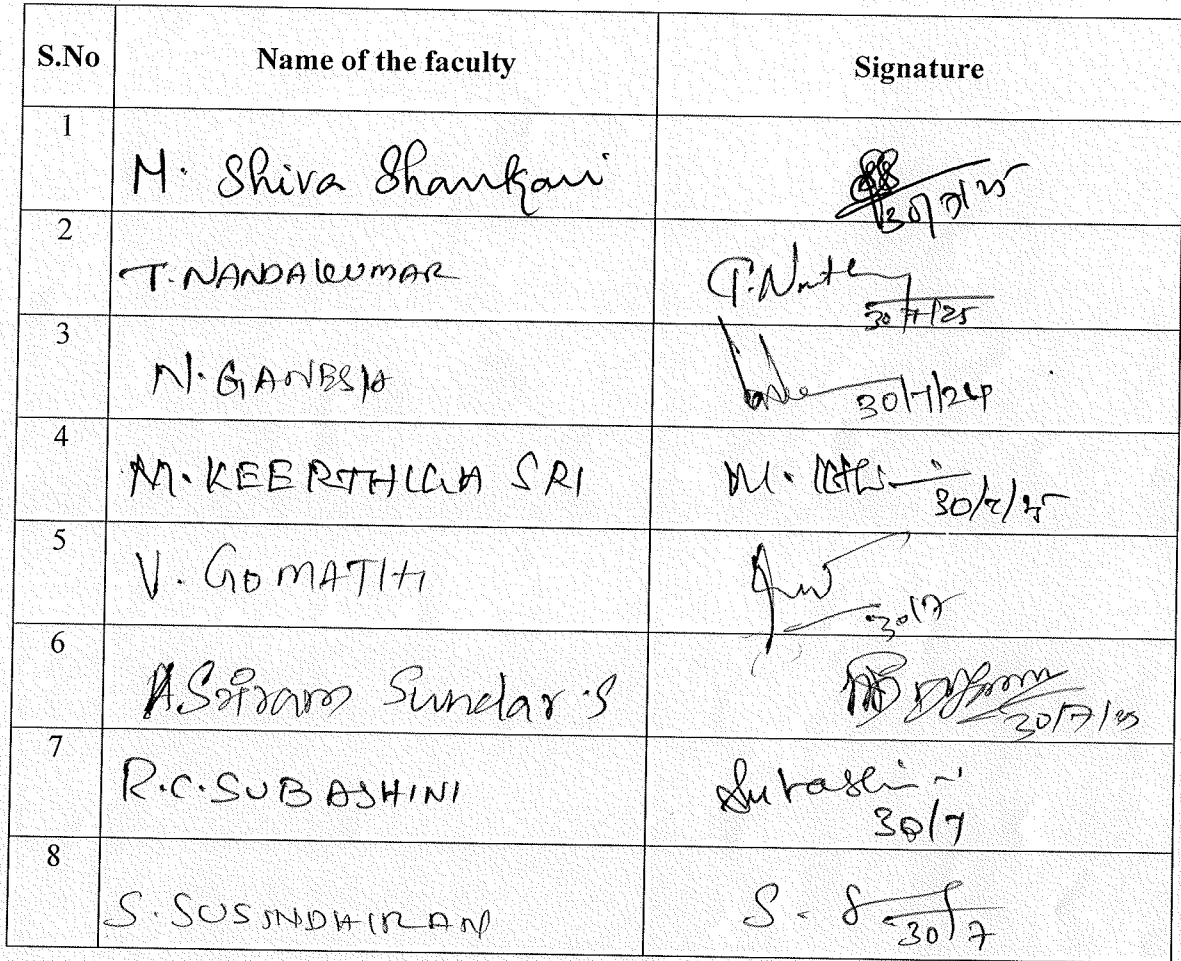 S.No Name of the faculty Signature
1
M. Shiva Shankari
30/7/25
2
T. NANDAKUMAR
30/7/25
3
N. GANESH
30/7/24
4
M. KEERTHIGA SRI M.
30/7/25
5
V. GOMATHI
30/7
6
A Sriram Sundar S
30/7/25
7
R.C. SUBASHINI Subashini
30/7
8
S. SUSINDHIRAN S. S
30/7